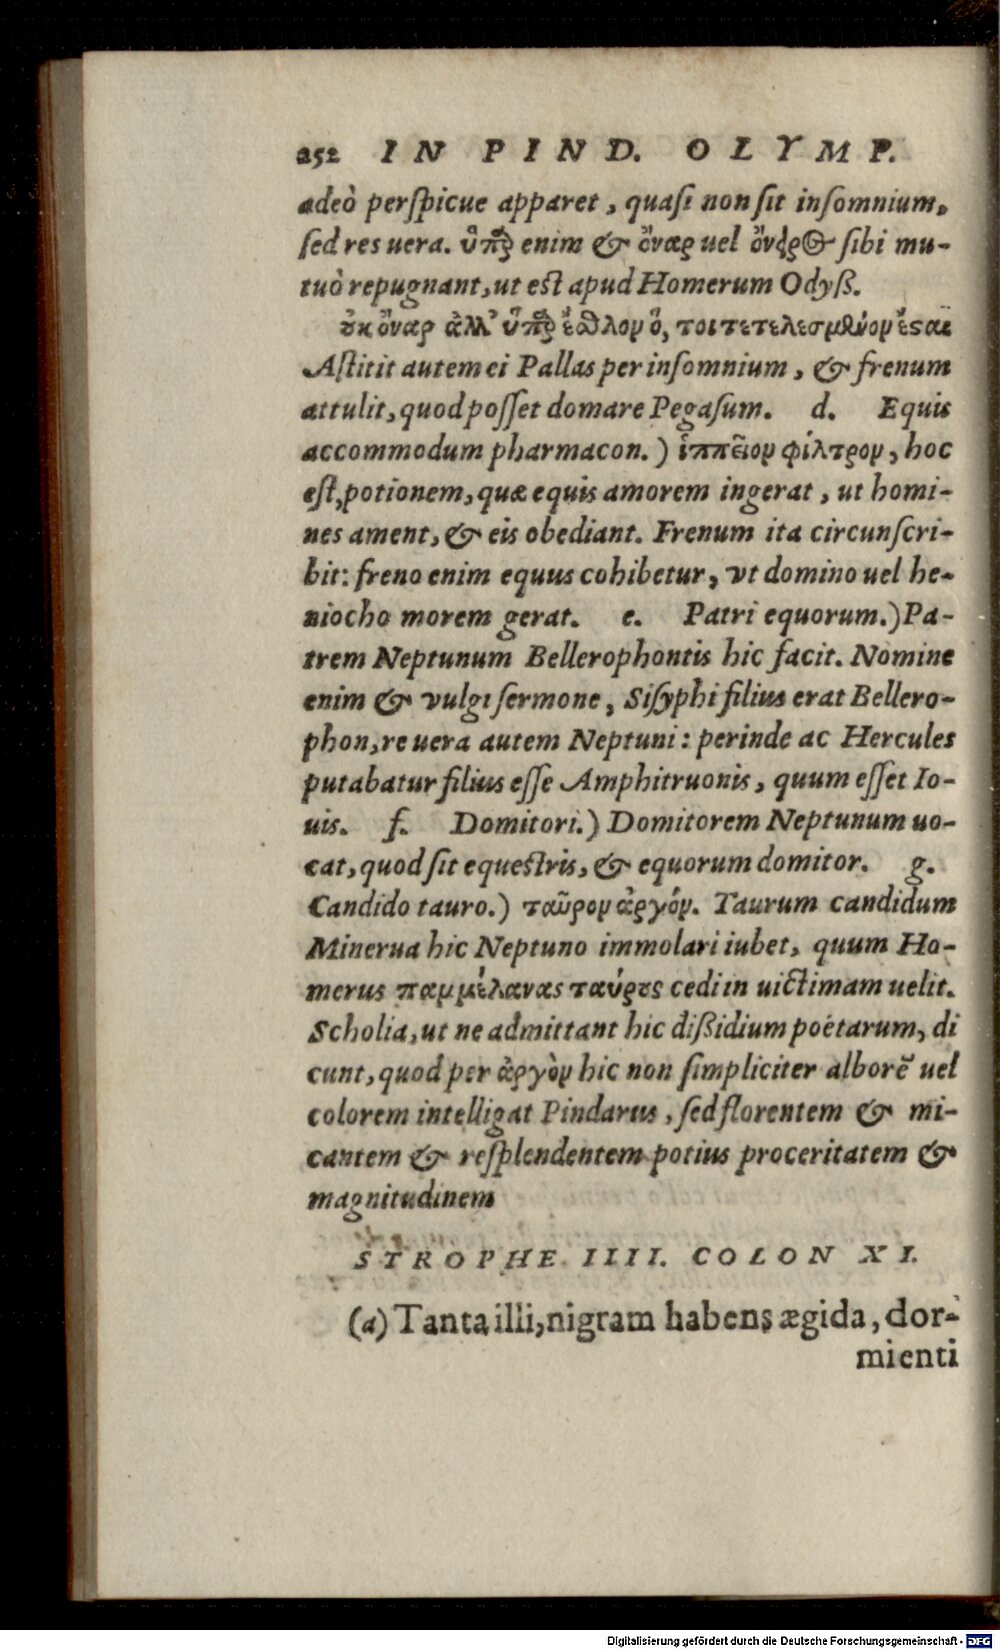 252 IN PIND. OLYMP.
adeò perſpicue apparet, quaſi non ſit inſomnium,
ſed res uera. ὕπαρ enim & ὄναρ uel ὄνειρος ſibi mu-
tuò repugnant, ut eſt apud Homerum Odyß.
οὐκ ὄναρ ἀλλ' ὕπαρ ἐσθλὸν ὅ, τοι τετελεσμένον ἔσαι
Aſtitit autem ei Pallas per inſomnium, & frenum
attulit, quod poſſet domare Pegaſum. d. Equis
accommodum pharmacon.) ἱππεῖον φίλτρον, hoc
eſt, potionem, quæ equis amorem ingerat, ut homi-
nes ament, & eis obediant. Frenum ita circunſcri-
bit: freno enim equus cohibetur, vt domino uel he-
niocho morem gerat. e. Patri equorum.) Pa-
trem Neptunum Bellerophontis hic facit. Nomine
enim & vulgi ſermone, Siſyphi filius erat Bellero-
phon, re uera autem Neptuni: perinde ac Hercules
putabatur filius eſſe Amphitruonis, quum eſſet Io-
uis. f. Domitori.) Domitorem Neptunum uo-
cat, quod ſit equeſtris, & equorum domitor. g.
Candido tauro.) ταῦρον ἀργόν. Taurum candidum
Minerua hic Neptuno immolari iubet, quum Ho-
merus παμμέλανας ταύρους cedi in uictimam uelit.
Scholia, ut ne admittant hic dißidium poëtarum, di
cunt, quod per ἀργὸν hic non ſimpliciter alborē uel
colorem intelligat Pindarus, ſed florentem & mi-
cantem & reſplendentem potius proceritatem &
magnitudinem
STROPHE IIII. COLON XI.
(a) Tanta illi, nigram habens ægida, dor-
mienti
Digitalisierung gefördert durch die Deutsche Forschungsgemeinschaft - DFG